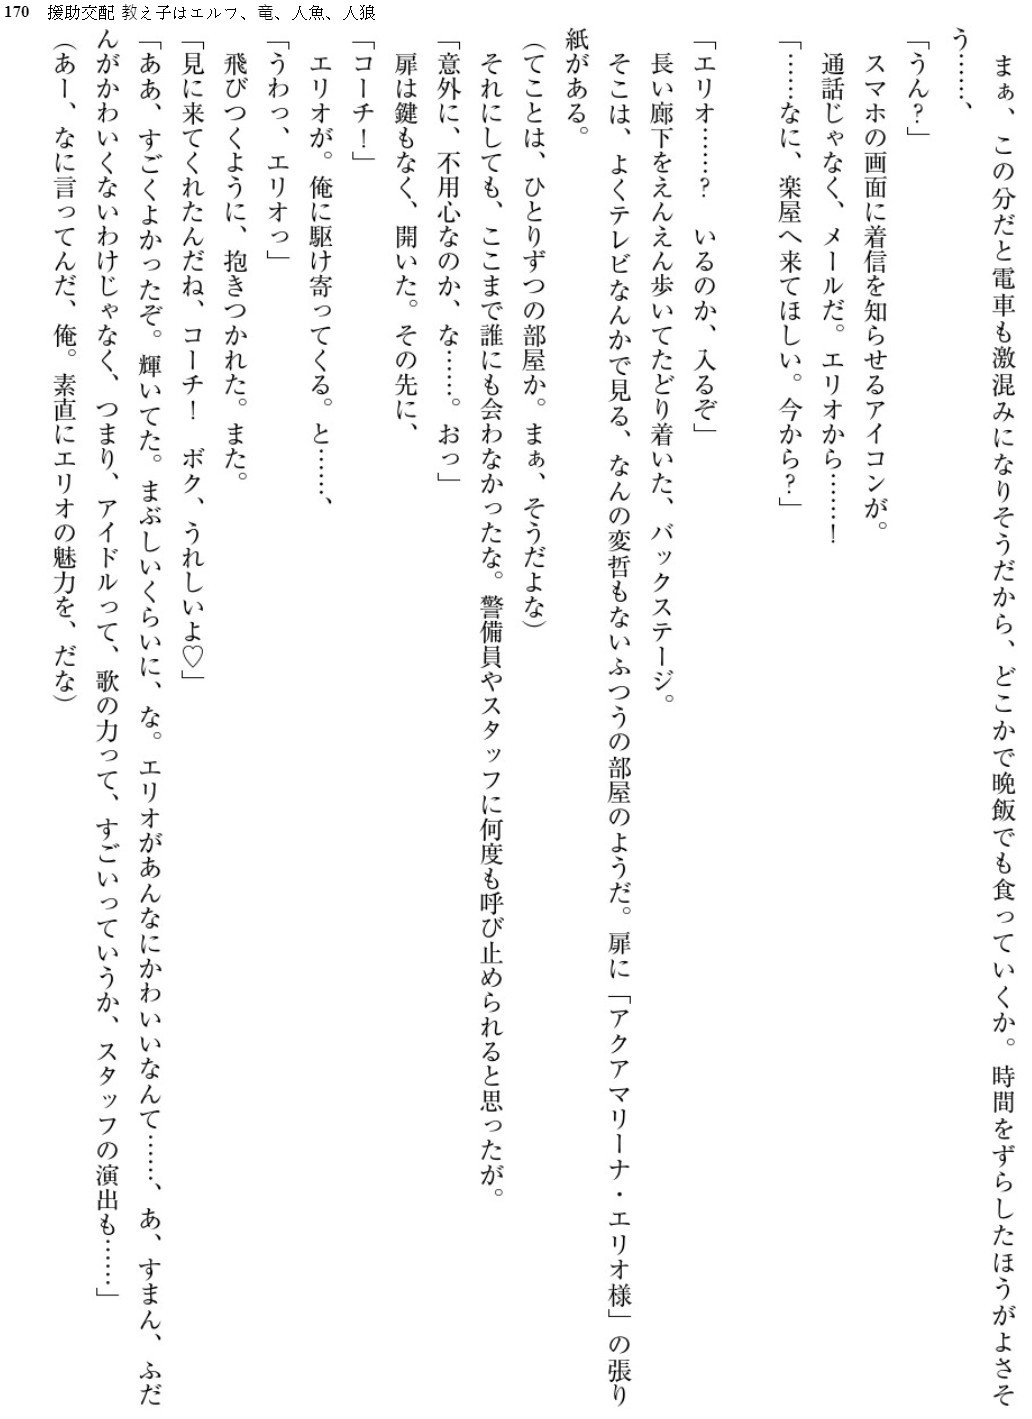 170　援助交配 教え子はエルフ、竜、人魚、人狼
　まぁ、この分だと電車も激混みになりそうだから、どこかで晩飯でも食っていくか。時間をずらしたほうがよさそ
う……、
「うん？」
　スマホの画面に着信を知らせるアイコンが。
　通話じゃなく、メールだ。エリオから……！
「……なに、楽屋へ来てほしい。今から？」
「エリオ……？　いるのか、入るぞ」
　長い廊下をえんえん歩いてたどり着いた、バックステージ。
　そこは、よくテレビなんかで見る、なんの変哲もないふつうの部屋のようだ。扉に「アクアマリーナ・エリオ様」の張り
紙がある。
（てことは、ひとりずつの部屋か。まぁ、そうだよな）
　それにしても、ここまで誰にも会わなかったな。警備員やスタッフに何度も呼び止められると思ったが。
「意外に、不用心なのか、な……。おっ」
　扉は鍵もなく、開いた。その先に、
「コーチ！」
　エリオが。俺に駆け寄ってくる。と……、
「うわっ、エリオっ」
　飛びつくように、抱きつかれた。また。
「見に来てくれたんだね、コーチ！　ボク、うれしいよ♡」
「ああ、すごくよかったぞ。輝いてた。まぶしいくらいに、な。エリオがあんなにかわいいなんて……、あ、すまん、ふだ
んがかわいくないわけじゃなく、つまり、アイドルって、歌の力って、すごいっていうか、スタッフの演出も……」
（あー、なに言ってんだ、俺。素直にエリオの魅力を、だな）